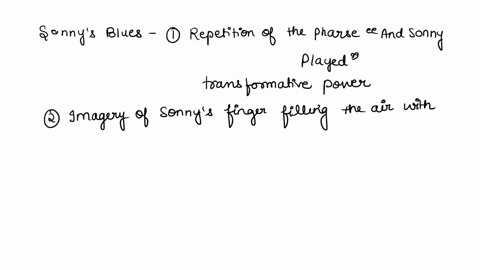 Sonny's Blues - ① Repetition of the Pharse "And Sonny
Played"
transformative power
② Imagery of Sonny's finger filling the air with